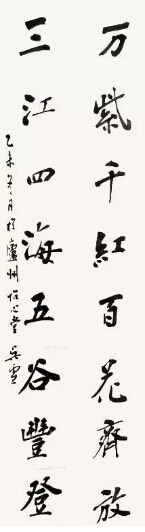 万紫千紅百花齊放
三江四海五谷豐登
乙未年月於廬州